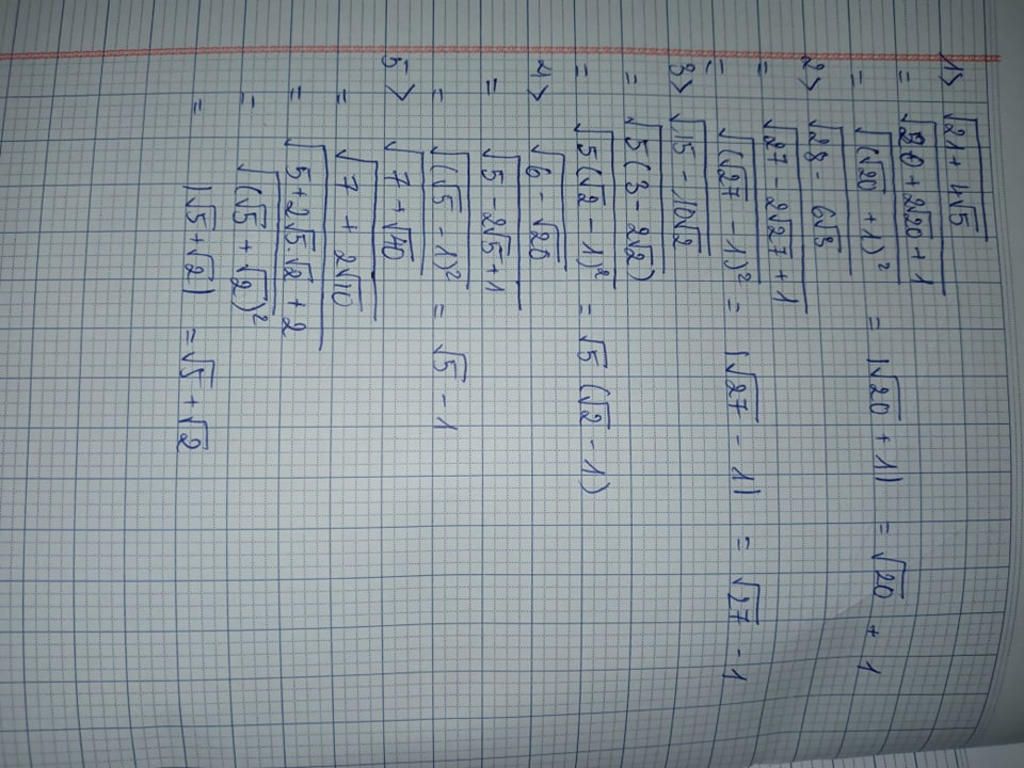 1) √21 + 4√5
= √20 + 2√20 + 1
= √(√20 + 1)² = |√20 + 1| = √20 + 1
2) √28 - 6√3
= √27 - 2√27 + 1
= √(√27 - 1)² = |√27 - 1| = √27 - 1
3) √15 - 10√2
= √5(3 - 2√2)
= √5(√2 - 1)² = √5 (√2 - 1)
4) √6 - √20
= √5 - 2√5 + 1
= √(√5 - 1)² = √5 - 1
5) √7 + √40
= √7 + 2√10
= √5 + 2√5√2 + 2
= √(√5 + √2)²
= |√5 + √2| = √5 + √2